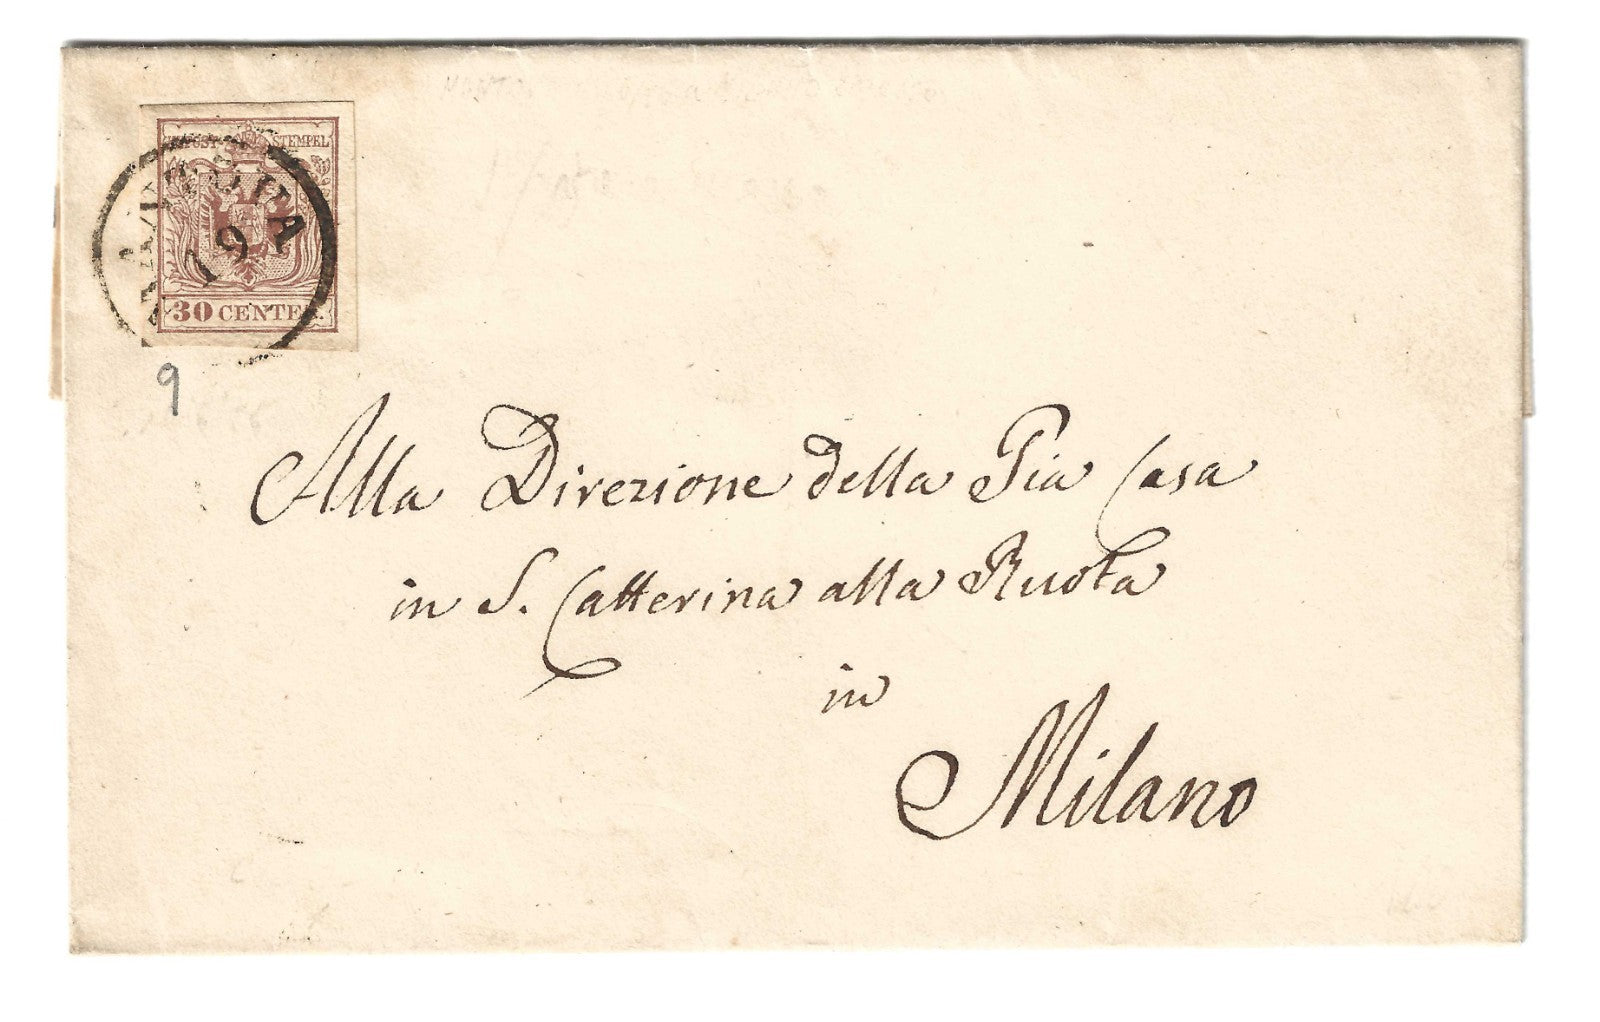 STEMPEL
MANTOVA
19
30 CENTES.
9
Alla Direzione della Pia Casa
in S. Catterina alla Ruota
in
Milano